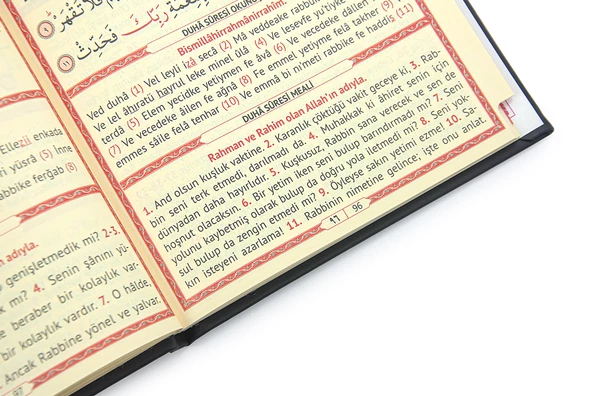 فَحَدِّثْ
DUHÂ SÛRESİ OKUNU
Bismillâhirrahmânirrahîm.
Ved duhâ (1) Vel leyli izâ secâ (2) Mâ veddeake rabbu
Ve lel âhıratü hayrul leke minel ûlâ (4) Ve lesevfe yu'tîyke
terdâ (5) Elem yecidke yetîymen fe âvâ (6) Ve vecedeke dâllen
(7) Ve vecedeke âilen fe ağnâ (8) Fe emmel yetîyme felâ takher (9)
emmes sâile felâ tenhar (10) Ve emmâ bi ni'meti rabbike fe haddis (11)
DUHÂ SÛRESİ MEALİ
Rahman ve Rahim olan Allah'ın adıyla.
1. And olsun kuşluk vaktine. 2. Karanlık çöktüğü vakit geceye ki, 3. Rab-
bin seni terk etmedi, darılmadı da. 4. Muhakkak ki âhiret senin için
dünyadan daha hayırlıdır. 5. Kuşkusuz, Rabbin sana verecek ve sen de
hoşnut olacaksın. 6. Bir yetim iken seni bulup barındırmadı mı? 7. Seni
yolunu kaybetmiş olarak bulup da doğru yola iletmedi mi? 8. Seni yok-
sul bulup da zengin etmedi mi? 9. Öyleyse sakın yetimi ezme! 10. Sa-
kın isteyeni azarlama! 11. Rabbinin nimetine gelince; işte onu anlat.
96
Ellezî enkada
ri yüsrâ (5) İnne
abbike ferğab (8)
n adıyla.
genişletmedik mi? 2-3.
k mı? 4. Senin şânını yü-
e beraber bir kolaylık var-
bir kolaylık vardır. 7. O hâlde,
. Ancak Rabbine yönel ve yalvar.
97